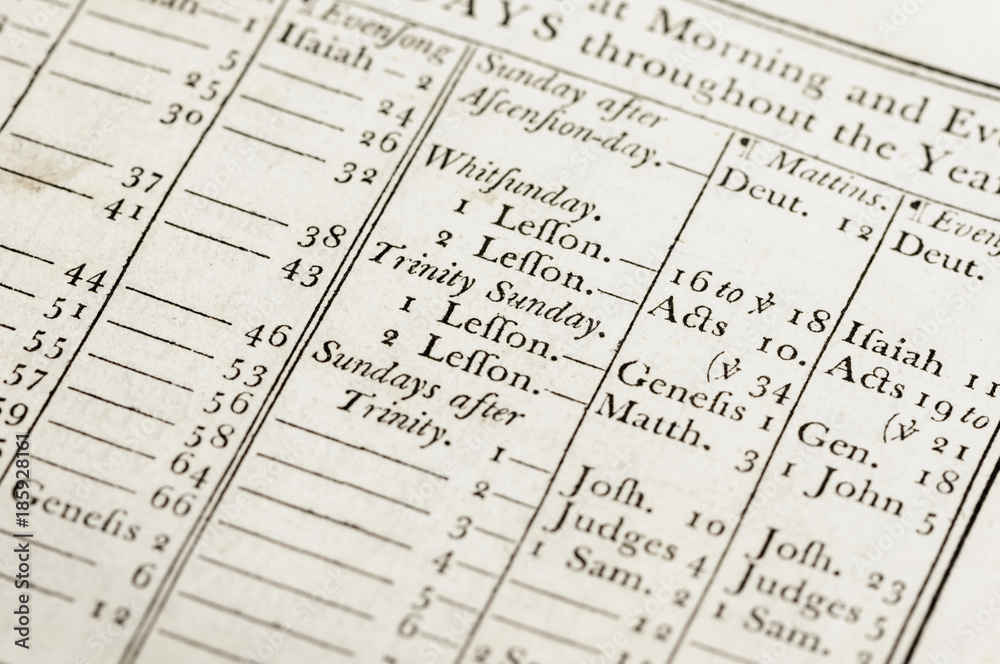 at Morning and Ev
AYS throughout the Yea
1
5
25
30
37
41
44
51
55
57
59
¶ Evenſong
Iſaiah — 2
24
26
32
38
43
46
53
56
58
64
66
Geneſis 2
6
12
Sunday after
Aſcenſion-day.
Whitſunday.
1 Leſſon.
2 Leſſon.
Trinity Sunday.
1 Leſſon.
2 Leſſon.
Sundays after
Trinity.
1
2
3
4
5
6
¶ Mattins.
Deut. 12
16 to ℣ 18
Acts 10.
(℣ 34
Geneſis 1
Matth. 3
Joſh. 10
Judges 4
1 Sam. 2
12
¶ Evenſ
Deut.
Iſaiah 11
Acts 19 to
(℣ 21
Gen. 18
1 John 5
Joſh. 23
Judges 5
1 Sam.
Adobe Stock | #185928161